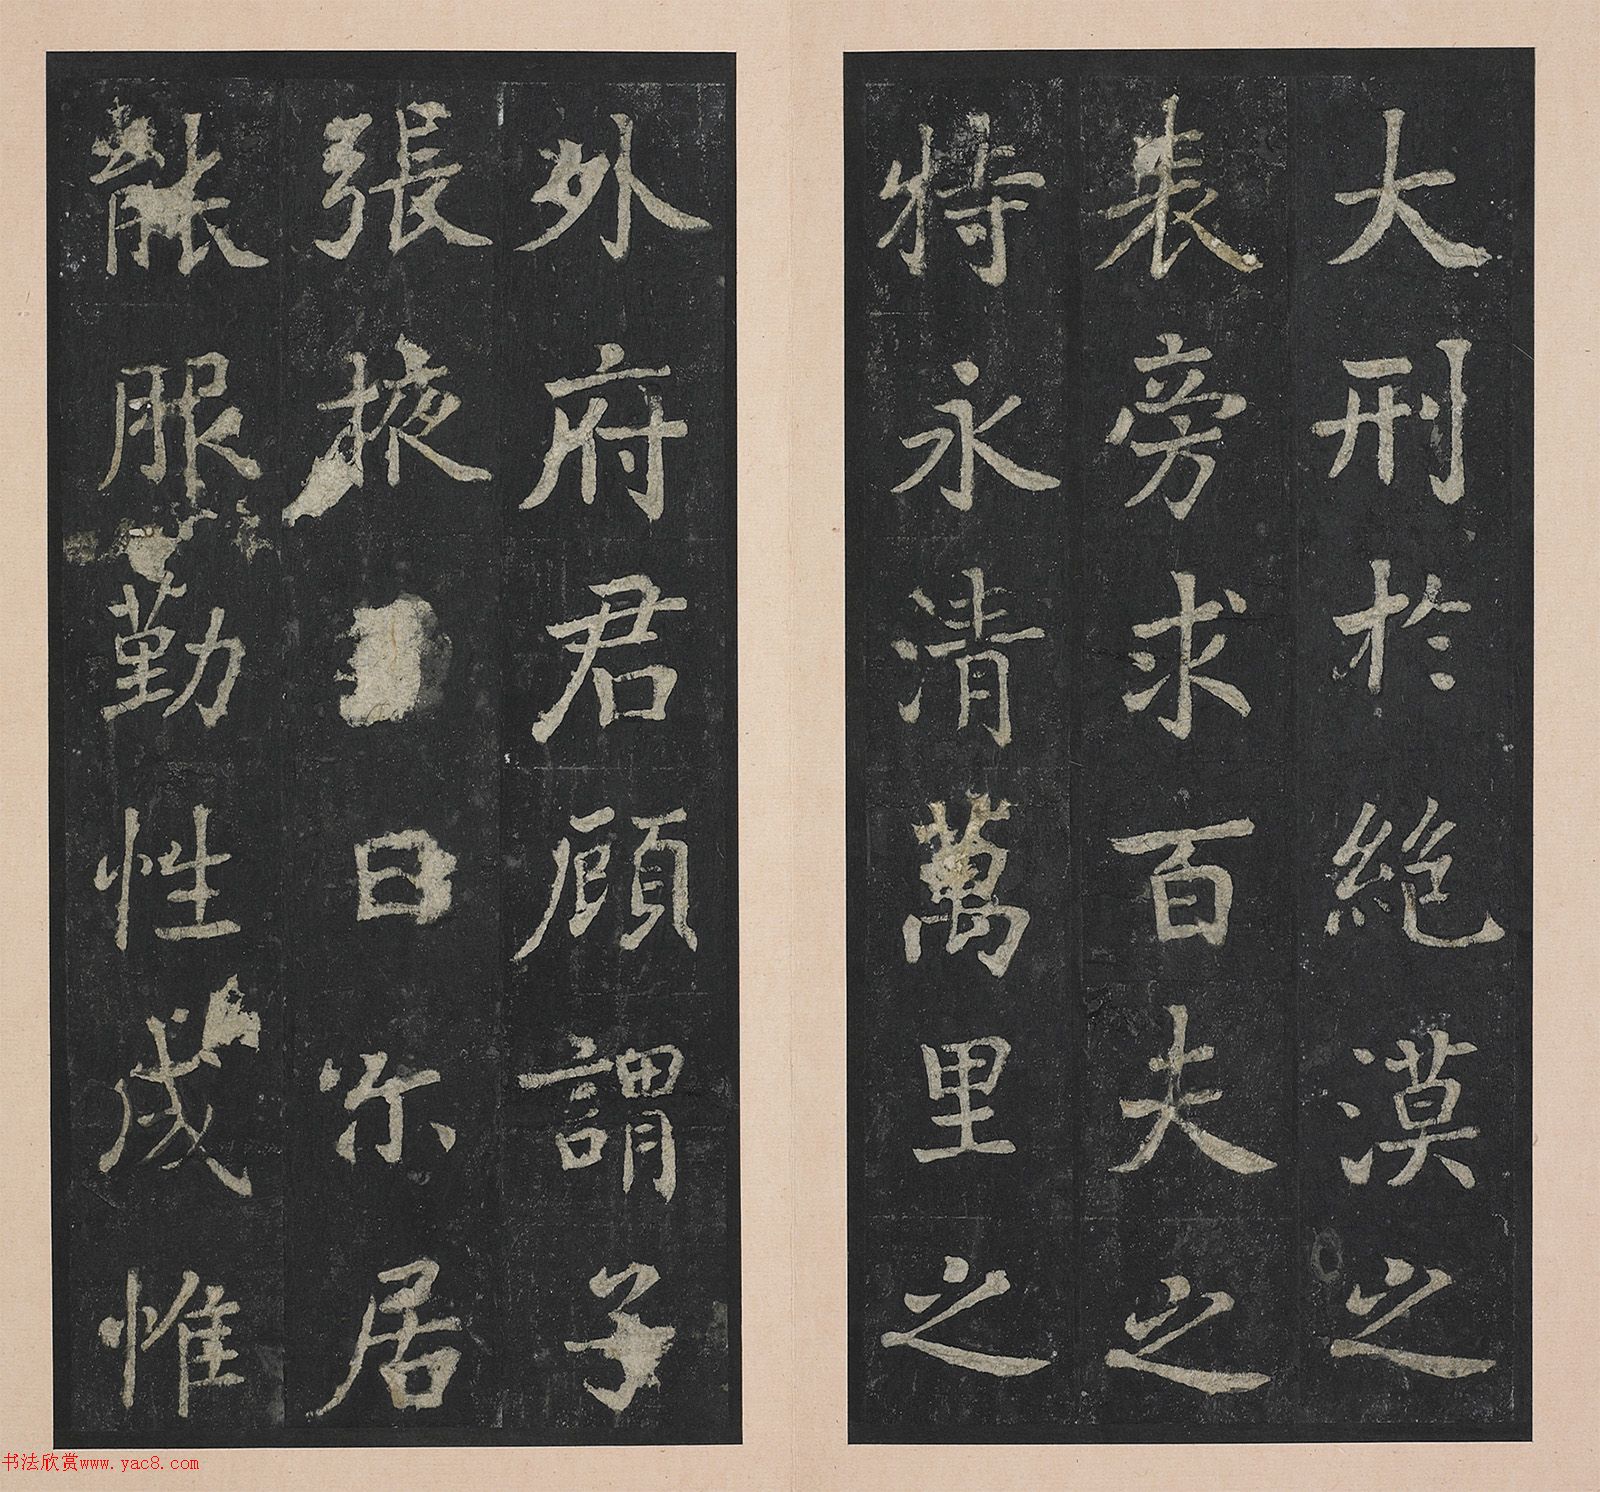 大刑於絶漠之
表旁求百夫之
特永清萬里之
外府君顧謂子
張掖曰尒居
能服勤性成惟
书法欣赏www.yac8.com